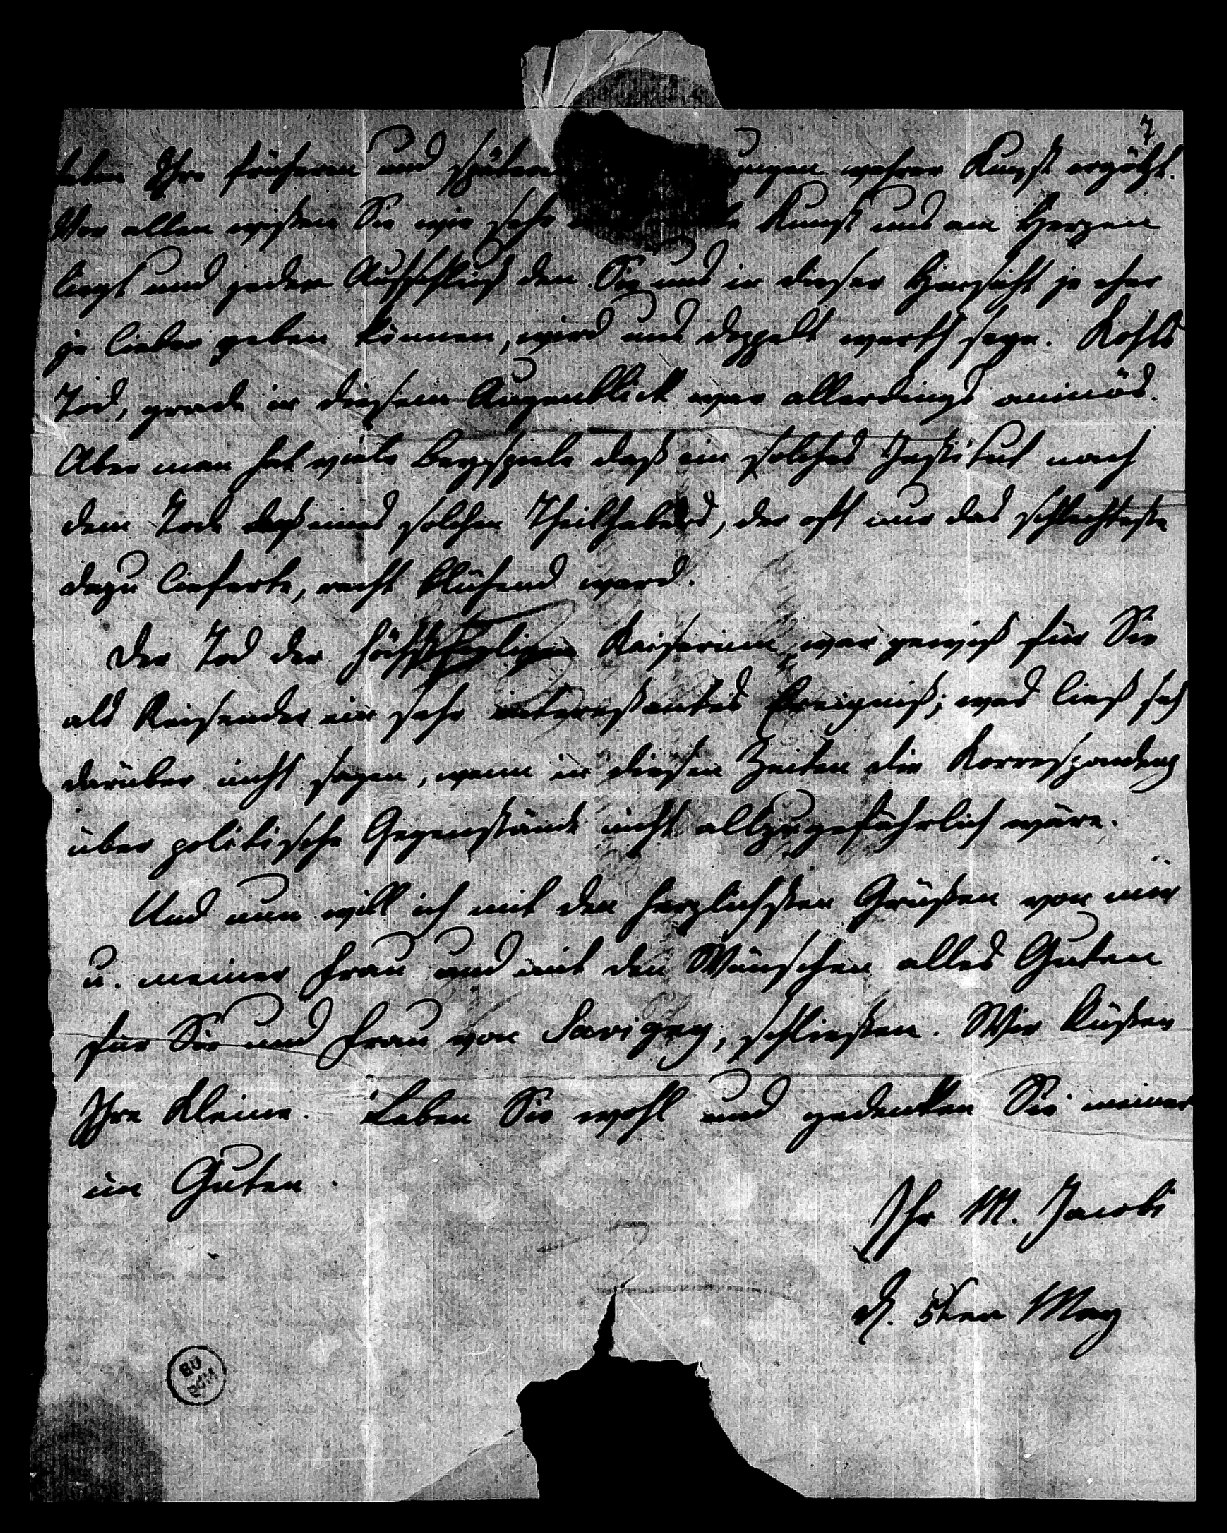 7
Ihre früheren und spätern ungen wahrer Kunst ergötzt.
Vor allem wißen Sie wie sehr Kunst uns am Herzen
liegt und jeder Aufschluß den Sie uns in dieser Hinsicht je eher
je lieber geben können, wird uns doppelt werth seyn.
Tod, grade in diesem Augenblick war allerdings ominös.
Aber man hat viele Beyspiele daß ein solches Institut nach
dem Tode eines solchen Theilhabers, der oft nur das schlechteste
dazu lieferte, recht blühend ward.
Der Tod der Kaiserin war gewiß für Sie
als Reisender ein sehr interessantes Ereigniß; was ließ sich
darüber nicht sagen, wenn in diesen Zeiten die Korrespondenz
über politische Gegenstände nicht allzugefährlich wäre.
Und nun will ich mit den herzlichsten Grüßen von mir
u. meiner Frau und mit den Wünschen alles Guten
für Sie und Frau von Savigny, schließen. Wir küßen
Ihre Kleine. Leben Sie wohl und gedenken Sie meiner
im Guten.
Ihr M. Jacobi
d. 5ten May
BU